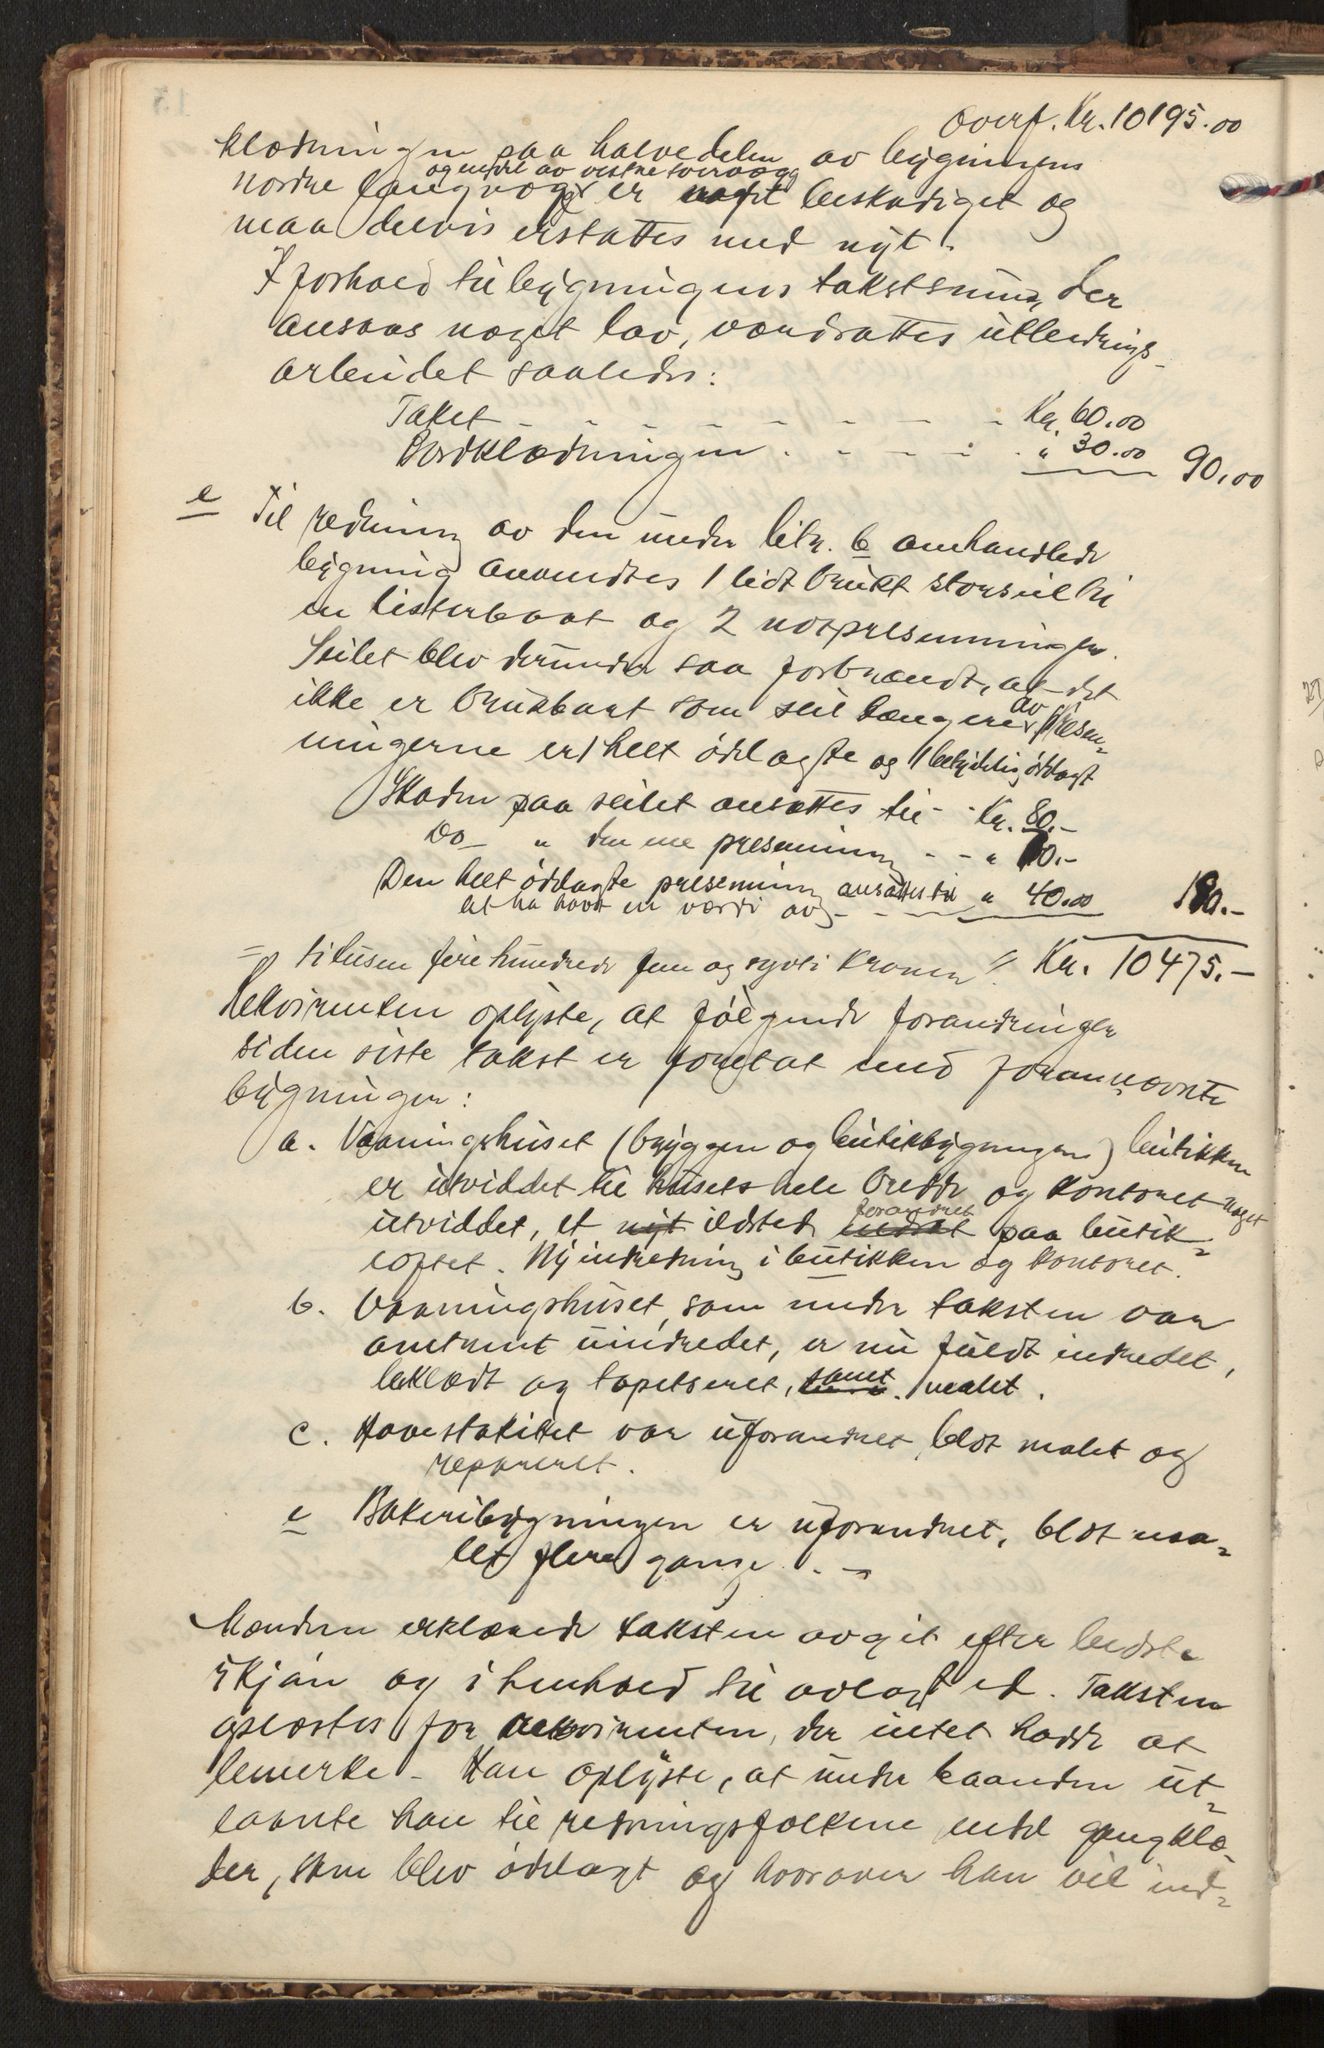 Overf. Kr. 10195.00
klædningen paa halvedelen av bygningens
og endel av vestre tvervæg
nordre langvæg er noget beskadiget og
maa delvis erstattes med nyt.
I forhold til bygningens takstsum, der
ansaas noget lav, værdsattes utbedrings-
arbeidet saaledes:
Taket - - - - - - - - Kr. 60.00
Bordklædningen . - - - . . " 30.00 90.00
e Til redning av den under litr. b omhandlede
bygning anvendtes 1 lidt brukt storseil til
en listerbaat og 2 notpresenninger.
Seilet blev derunder saa forbrændt, at det
ikke er brukbart som seil længere, av presen-
ningerne er 1 helt ødelagte og 1 betydelig ødelagt
Skaden paa seilet ansættes til - - Kr. 80.-
Do - " den ene presenning - - "
Den helt ødelagte presenning ansættes til " 40.00
at ha havt en værdi av - - -
= titusen firehundrede fem og sytti kroner // Kr. 10475.-
Rekvirenten oplyste, at følgende forandringer
siden siste takst er foretat med forannævnte
bygninger:
a. Vaaningshuset (bryggen og butikbygningen) butikken
er utviddet til husets hele bredde og kontoret noget
utviddet, et nyt ildsted forandret indsat paa butik-
loftet. Ny indredning i butikken og kontoret.
b. Vaaningshuset, som under taksten var
omtrent uindredet, er nu fuldt indredet,
beklædt og tapetseret, samt malet.
c. Havestakittet var uforandret, blot malet og
repareret.
e Bakeribygningen er uforandret, blot ma-
let flere gange. . -
Mændene erklærede taksten avgit efter bedste
skjøn og i henhold til avlagt ed. Taksten
oplæstes for rekvirenten, der intet hadde at
bemerke - Han oplyste, at under branden ut-
laante han til redningsfolkene endel gangklæ-
der, som blev ødelagt og hvorover han vil ind-